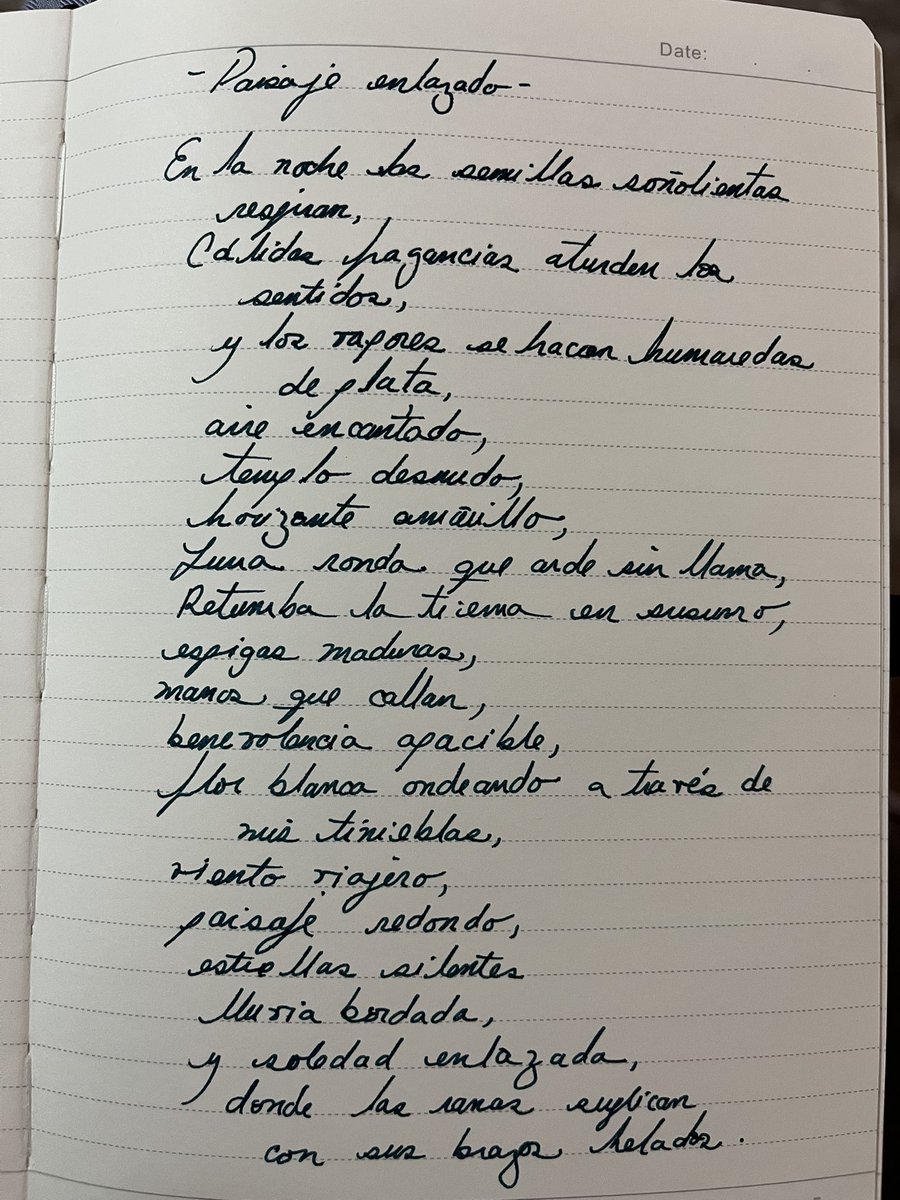 Date:
- Paisaje enlazado -
En la noche las semillas soñolientas
respiran,
Cálidas fragancias aturden los
sentidos,
y los vapores se hacen humaredas
de plata,
aire encantado,
templo desnudo,
horizonte amarillo,
Luna ronda que arde sin llama,
Retumba la tierra en susurro,
espigas maduras,
manos que callan,
benevolencia apacible,
flor blanca ondeando a través de
mis tinieblas,
viento viajero,
paisaje redondo,
estrellas silentes
lluvia bordada,
y soledad enlazada,
donde las ramas suplican
con sus brazos helados.